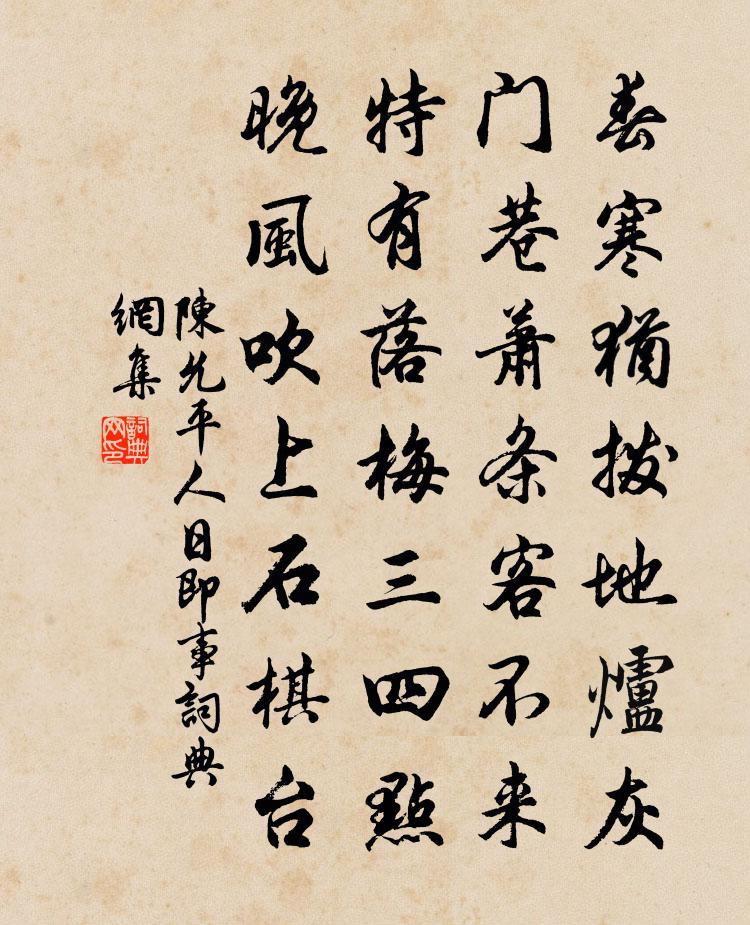 春寒犹拨地爐灰
门巷萧条客不来
特有落梅三四點
晚風吹上石棋台
陳允平人日即事詞典
網集
詞典網印